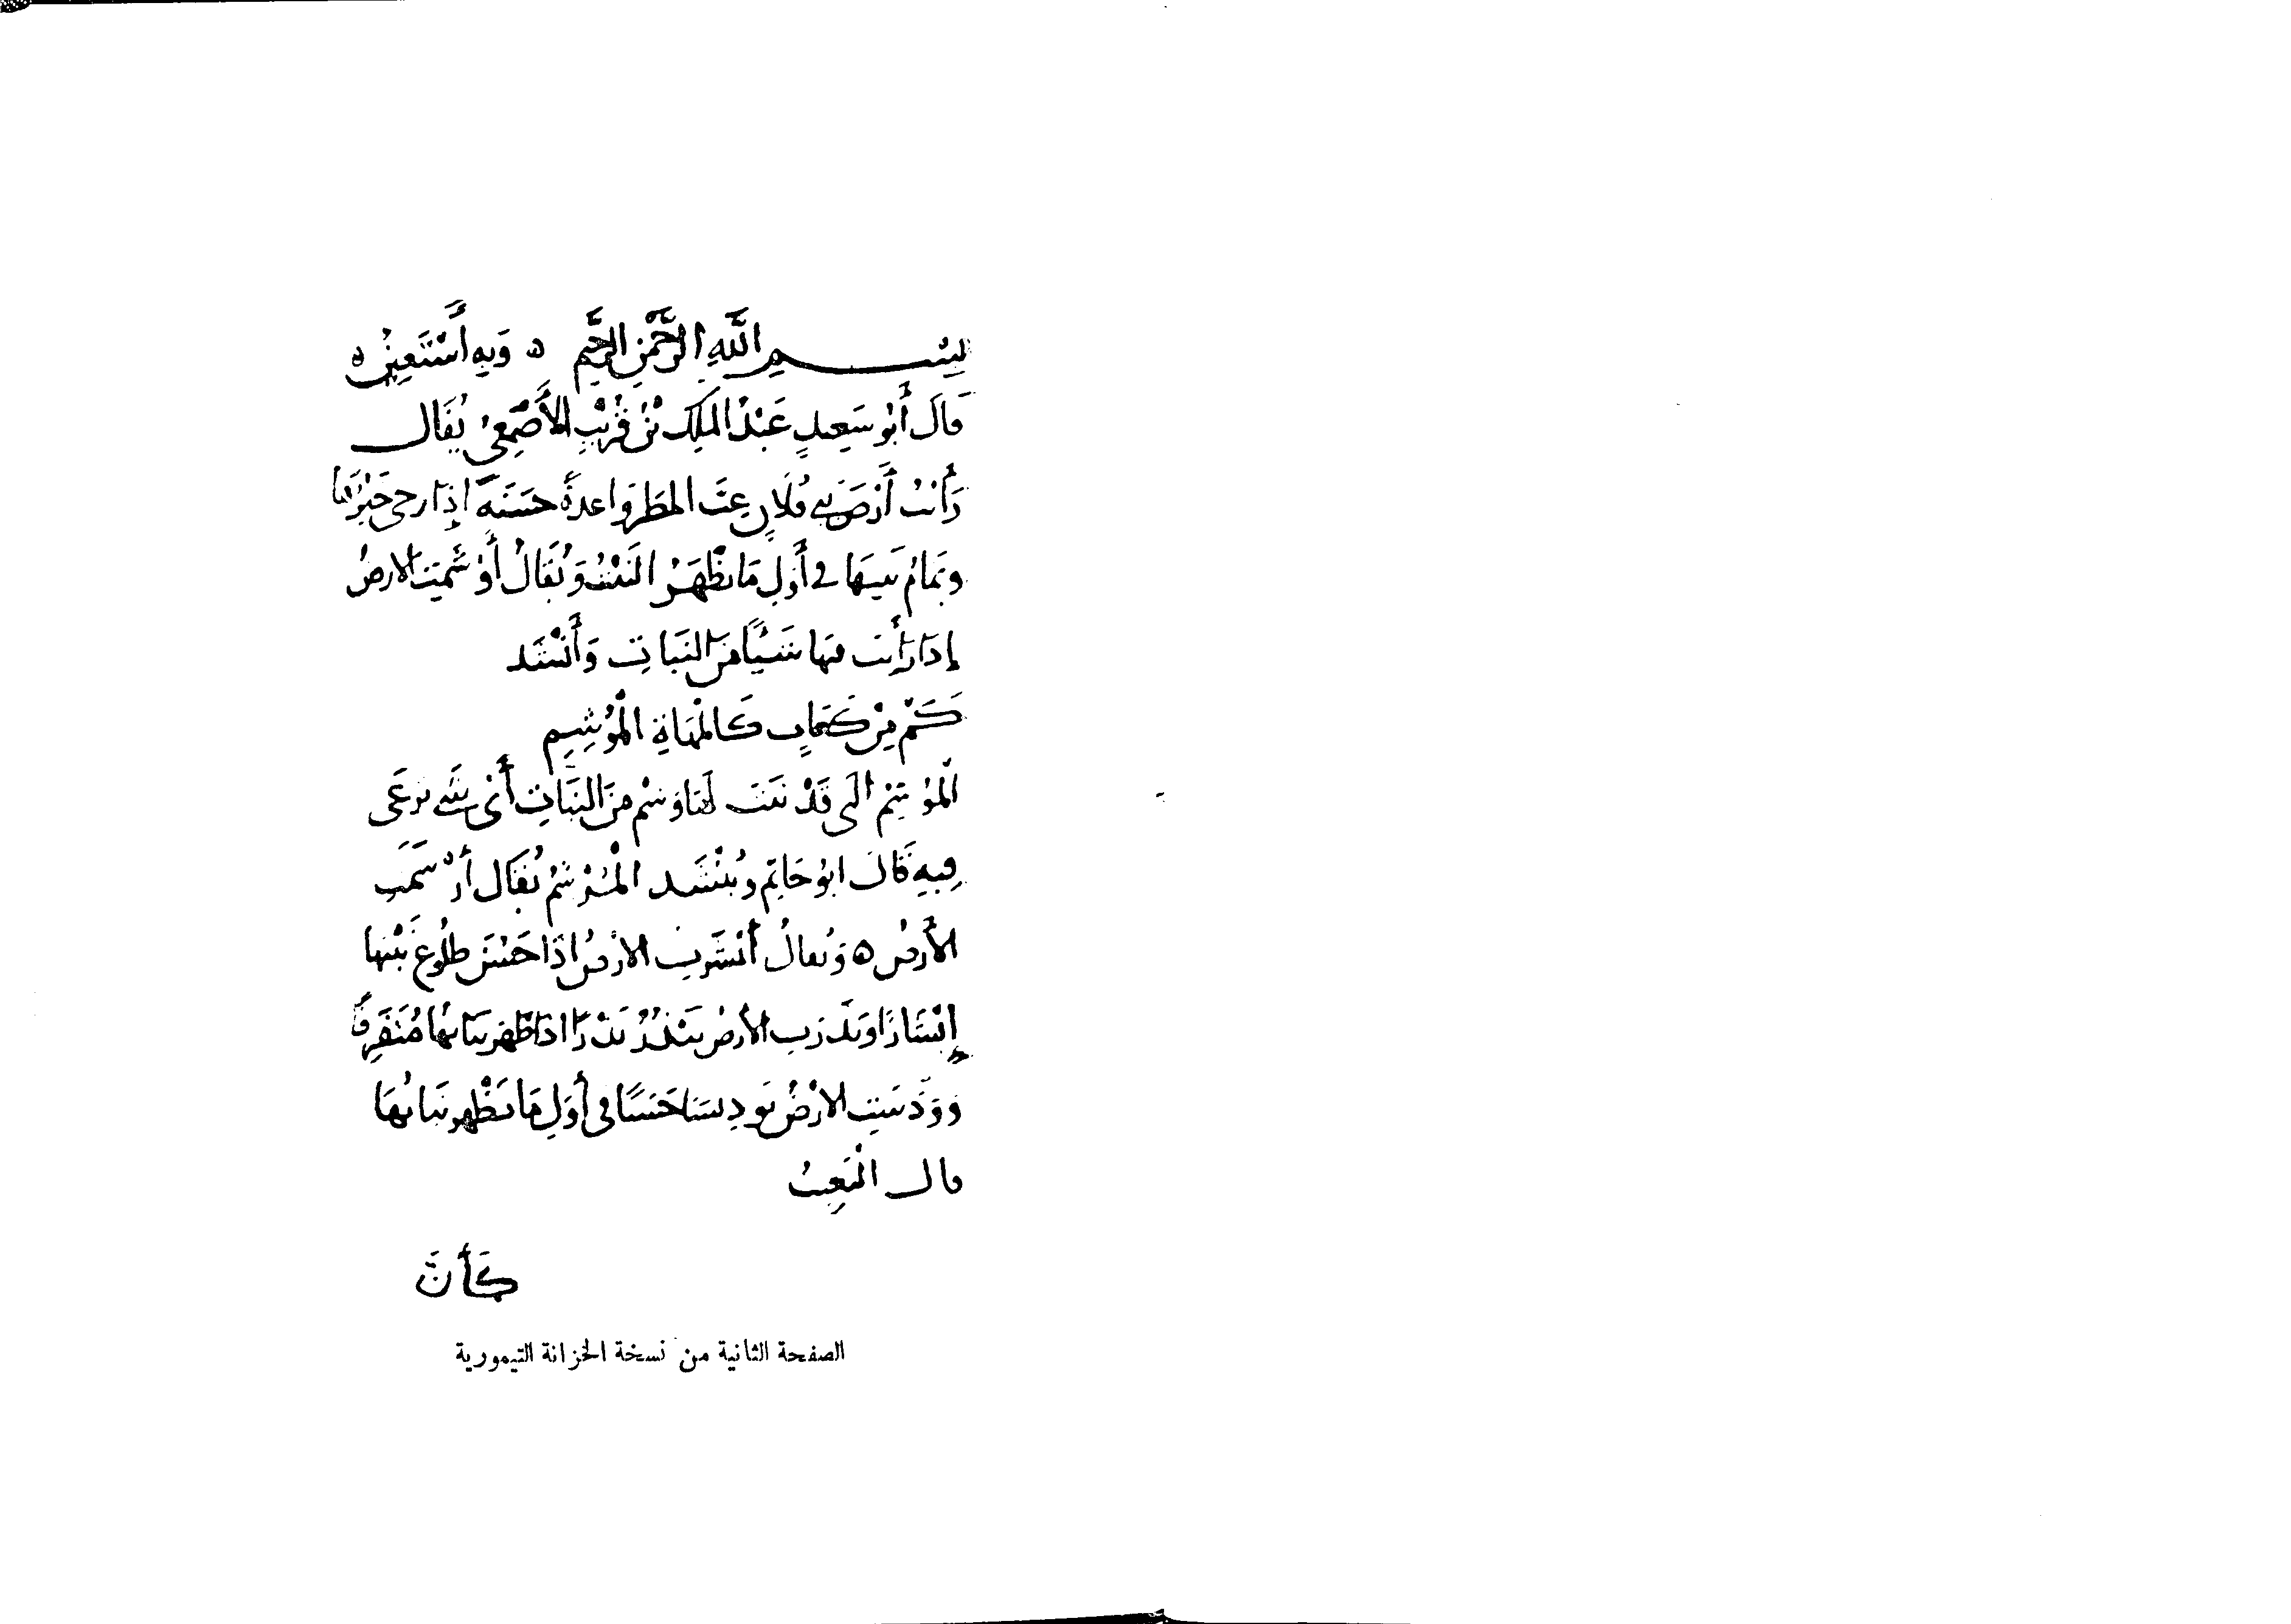 بِسْمِ اللَّهِ الرَّحْمٰنِ الرَّحِيمِ ه وَبِهِ أَسْتَعِينُ ه
قَالَ أَبُو سَعِيدٍ عَبْدُ الْمَلِكِ بْنُ قُرَيْبٍ الْأَصْمَعِيُّ يُقَالُ
رَأَيْتُ أَرْضَ بَنِي فُلَانٍ غِبَّ المَطَرِ وَاعِدَةً حَسَنَةً إِذَا رُجِيَ خَيْرُهَا
وَتَمَامُ نَبْتِهَا فِي أَوَّلِ مَا يَظْهَرُ النَّبْتُ وَيُقَالُ أَوْشَمَتِ الأرضُ
إِذَا رَأَيْتَ فِيهَا شَيْئًا مِنَ النَّبَاتِ وَأَنْشَدَ
كَمْ مِنْ كَعَابٍ كَالْمَهَاةِ الْمُوشِمِ
الْمُوشِمُ الَّتِي قَدْ نَبَتَ لَهَا وَشْمٌ مِنَ النَّبَاتِ أَيْ شَيْءٌ تَرْعَى
فِيهِ قَالَ أَبُو حَاتِمٍ وَيُنْشَدُ الْمُرْشِمُ يُقَالُ أَرْشَمَتِ
الْأَرْضُ ه وَيُقَالُ أَبْشَرَتِ الْأَرْضُ إِذَا حَسُنَ طُلُوعُ نَبْتِهَا
إِبْشَارًا وَبَذَرَتِ الْأَرْضُ تَبْذُرُ بَذْرًا إِذَا ظَهَرَ نَبَاتُهَا مُتَفَرِّقًا
وَوَدَّسَتِ الْأَرْضُ تَوْدِيسًا حَسَنًا فِي أَوَّلِ مَا يَظْهَرُ نَبَاتُهَا
قال
كَأَنَّ
الصفحة الثانية من نسخة الخزانة التيمورية